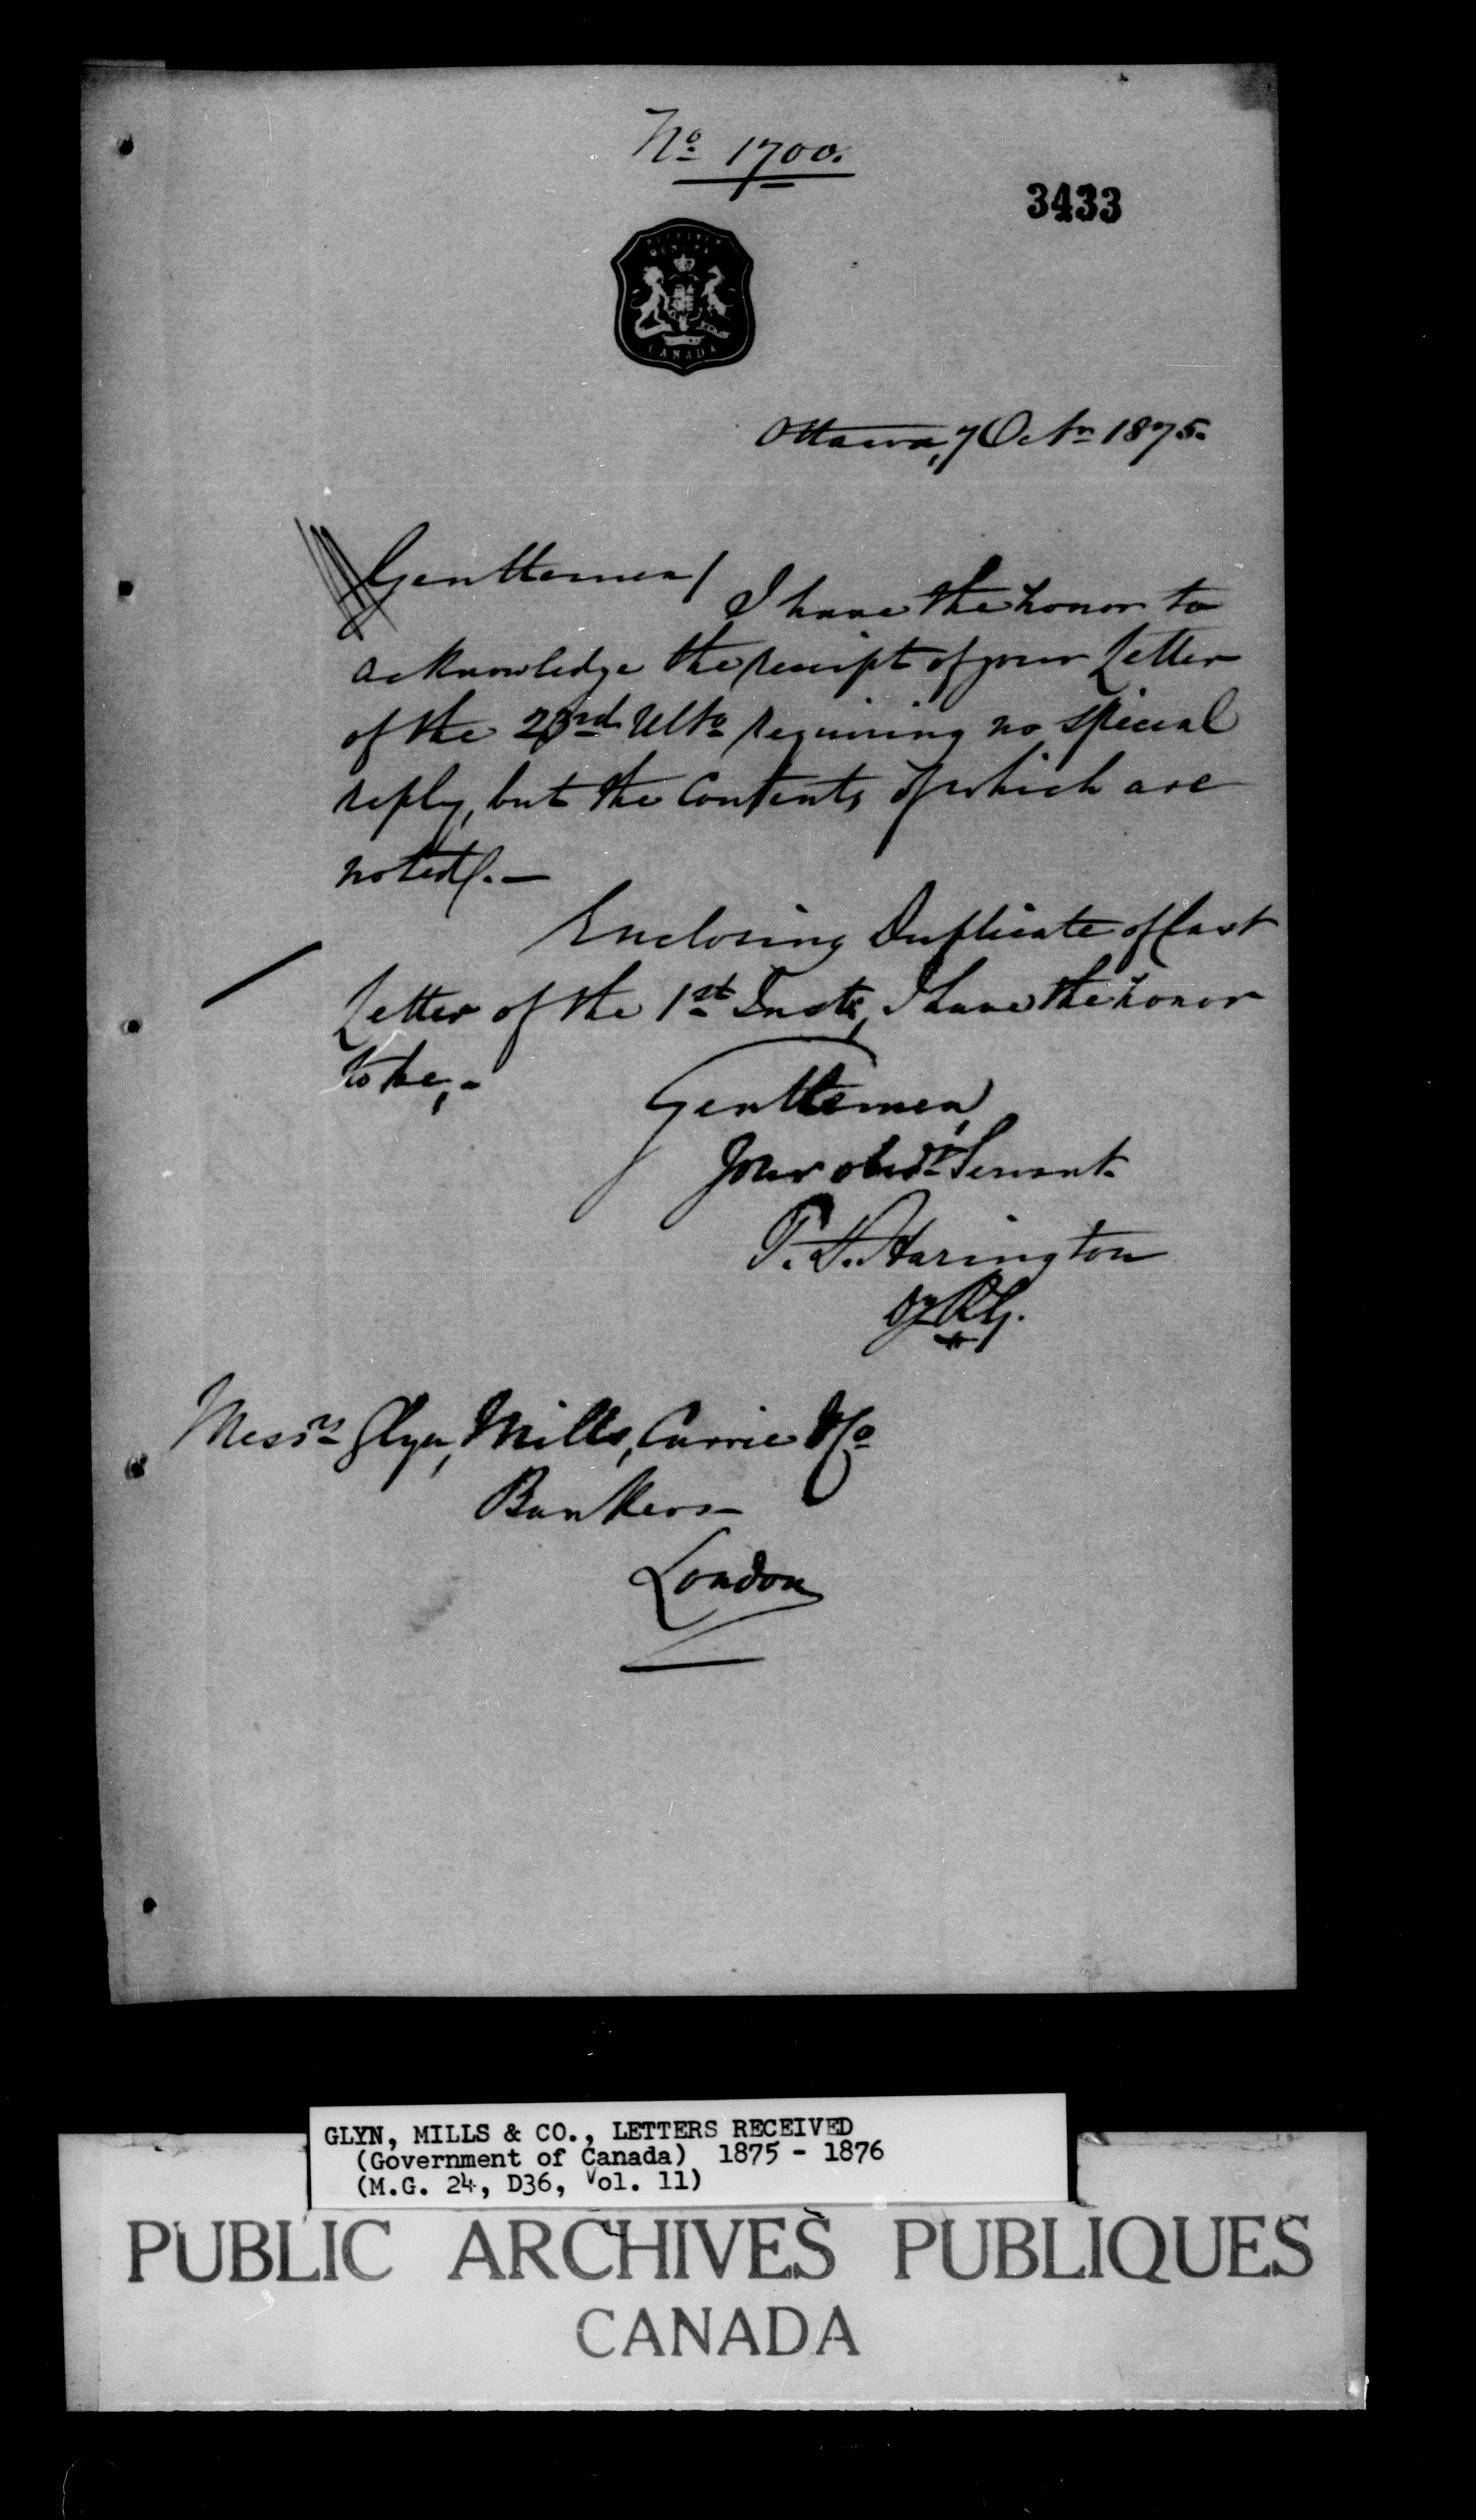 No 1700.
3433
RECEIVER
GENERAL
CANADA
Ottawa, 7 Octr 1875.
Gentlemen/
I have the honor to
acknowledge the receipt of your Letter
of the 23rd Ulto requiring no special
reply, but the Contents of which are
noted/.—
Enclosing Duplicate of last
Letter of the 1st Inst, I have the honor
to be,-
Gentlemen,
Your obedt Servant
T. D. Harington
Dy RG.
Messrs Glyn, Mills, Currie & Co
Bankers—
London
GLYN, MILLS & CO., LETTERS RECEIVED
(Government of Canada) 1875 - 1876
(M.G. 24, D36, Vol. 11)
PUBLIC ARCHIVES PUBLIQUES
CANADA